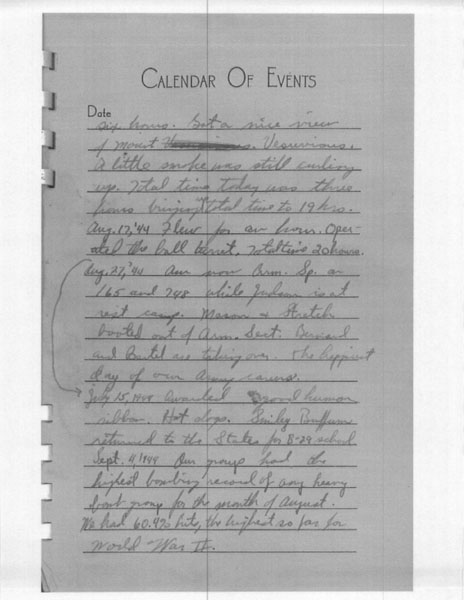 CALENDAR OF EVENTS
Date
six hours. Got a nice view
of Mount Vesuvious.
A little smoke was still curling
up. Total time today was three
hours bringing total time to 19 hrs.
Aug. 17, '44 Flew for an hour. Oper-
ated the ball turret. Total time 20 hours.
Aug. 27, '44 Am now Arm. Sp. on
165 and 748 while Judson is at
rest camp. Mason & Stretch
booted out of Arm. Sect. Bernard
and are taking over. The happiest
day of our Army careers.
July 15, 1944 Awarded good human
ribbon. Hot dogs. Smiley Buffum
returned to the States for B-29 school
Sept. 4, 1944 Our group had the
highest bombing record of any heavy
bomb group for the month of August.
We had 60.4% hits, the highest so far for
World War II.